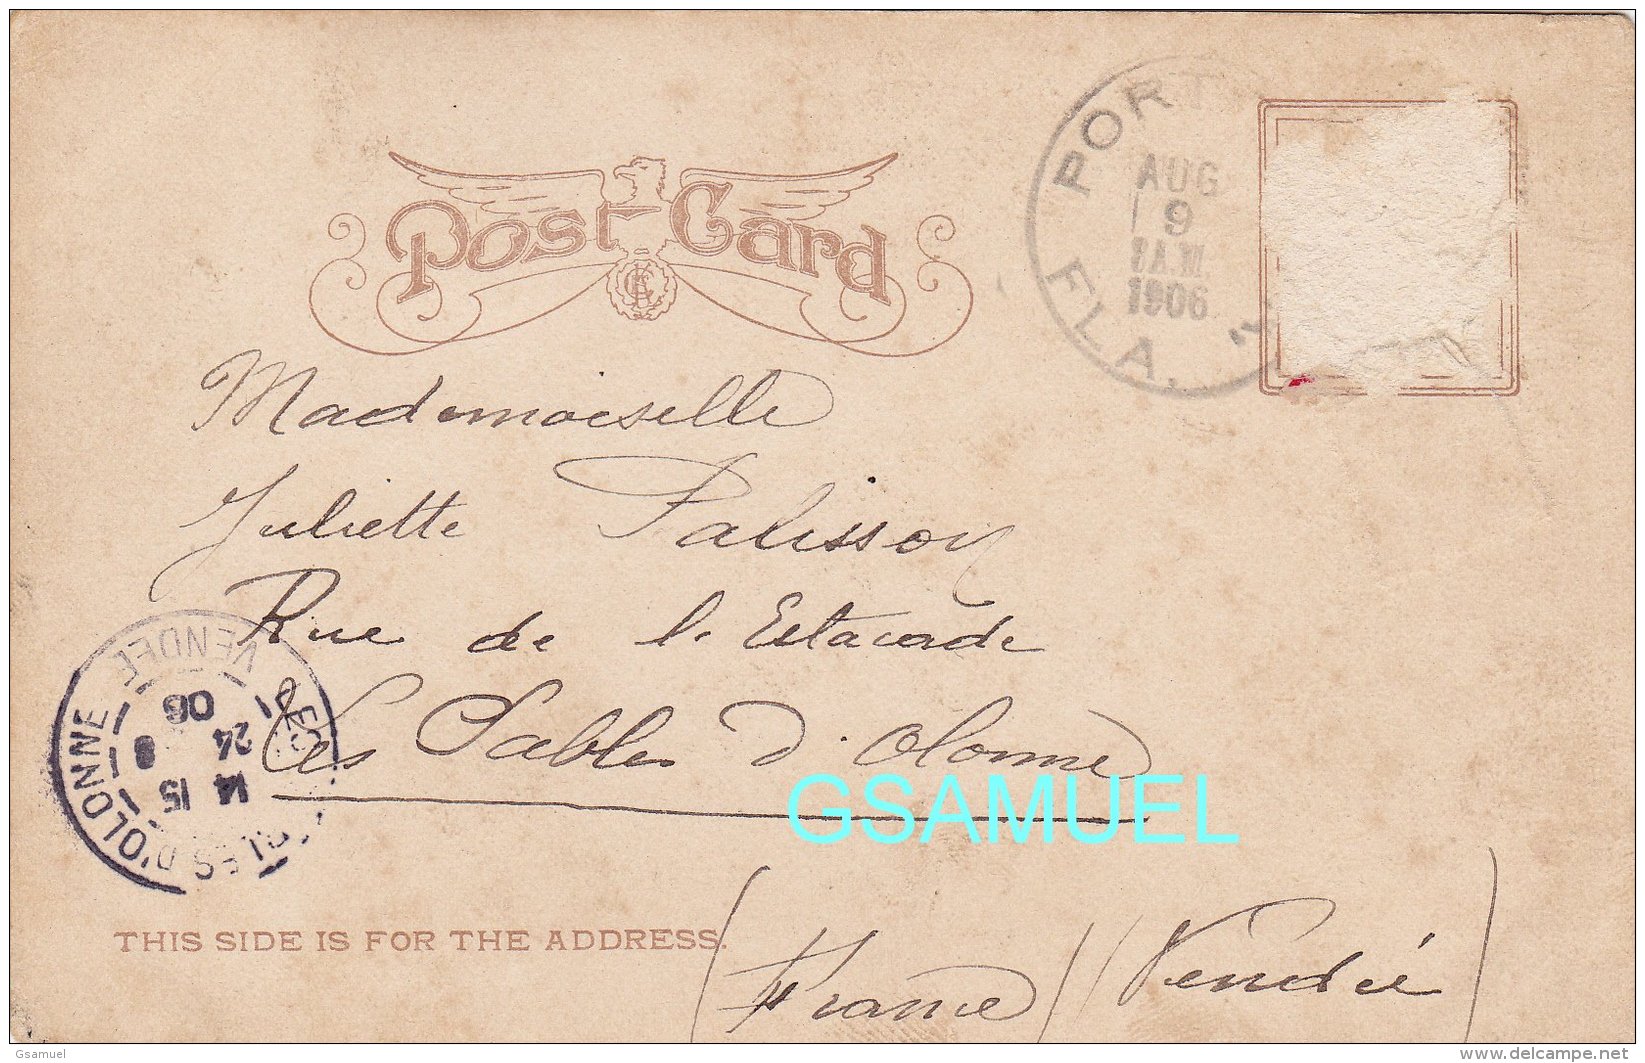 Post Card
PORT
AUG
9
1906
FLA.
Mademoiselle
Juliette Palisson
Rue de l'Estacade
Les Sables d'Olonne
VENDEE
LES SABLES D'OLONNE
14 15
24 8
06
GSAMUEL
THIS SIDE IS FOR THE ADDRESS.
(France) (Vendée)
Gsamuel
www.delcampe.net